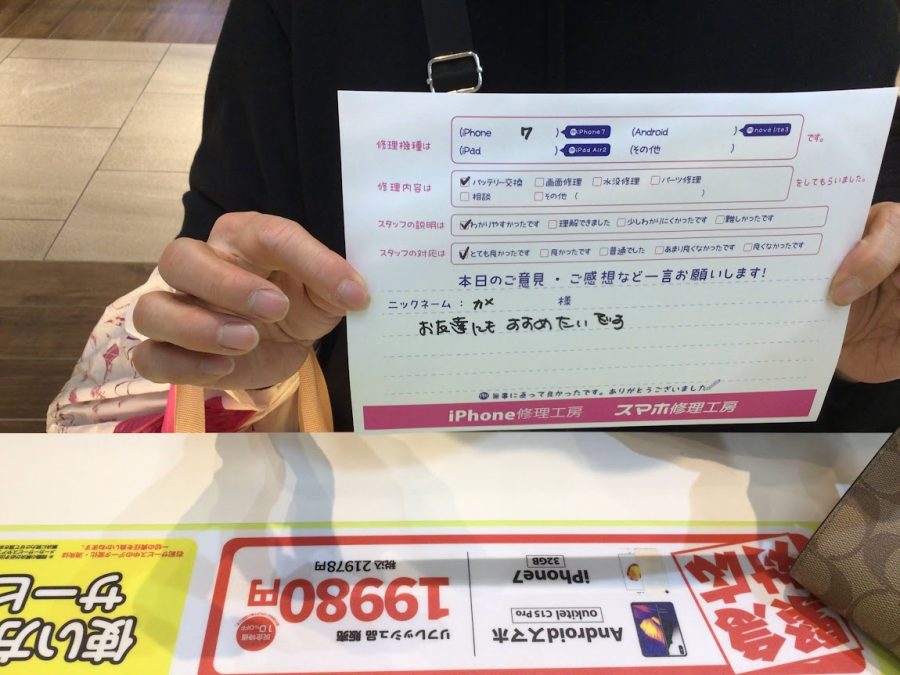 修理機種は (iPhone 7 ) iPhone7 (Android ) nova lite3 です。
(iPad ) iPad Air2 (その他 )
修理内容は ✓バッテリー交換 □画面修理 □水没修理 □パーツ修理 をしてもらいました。
□相談 □その他 ( )
スタッフの説明は ✓わかりやすかったです □理解できました □少しわかりにくかったです □難しかったです
スタッフの対応は ✓とても良かったです □良かったです □普通でした □あまり良くなかったです □良くなかったです
本日のご意見・ご感想など一言お願いします!
ニックネーム : カメ 様
お友達にもすすめたいです
無事に直って良かったです。ありがとうございました
iPhone修理工房 スマホ修理工房
緊急
Androidスマホ
Oukitel C15 Pro
iPhone7
32GB
リフレッシュ品 販売
現金特価
10%OFF
19980円
税込21978円
使い方
サービ